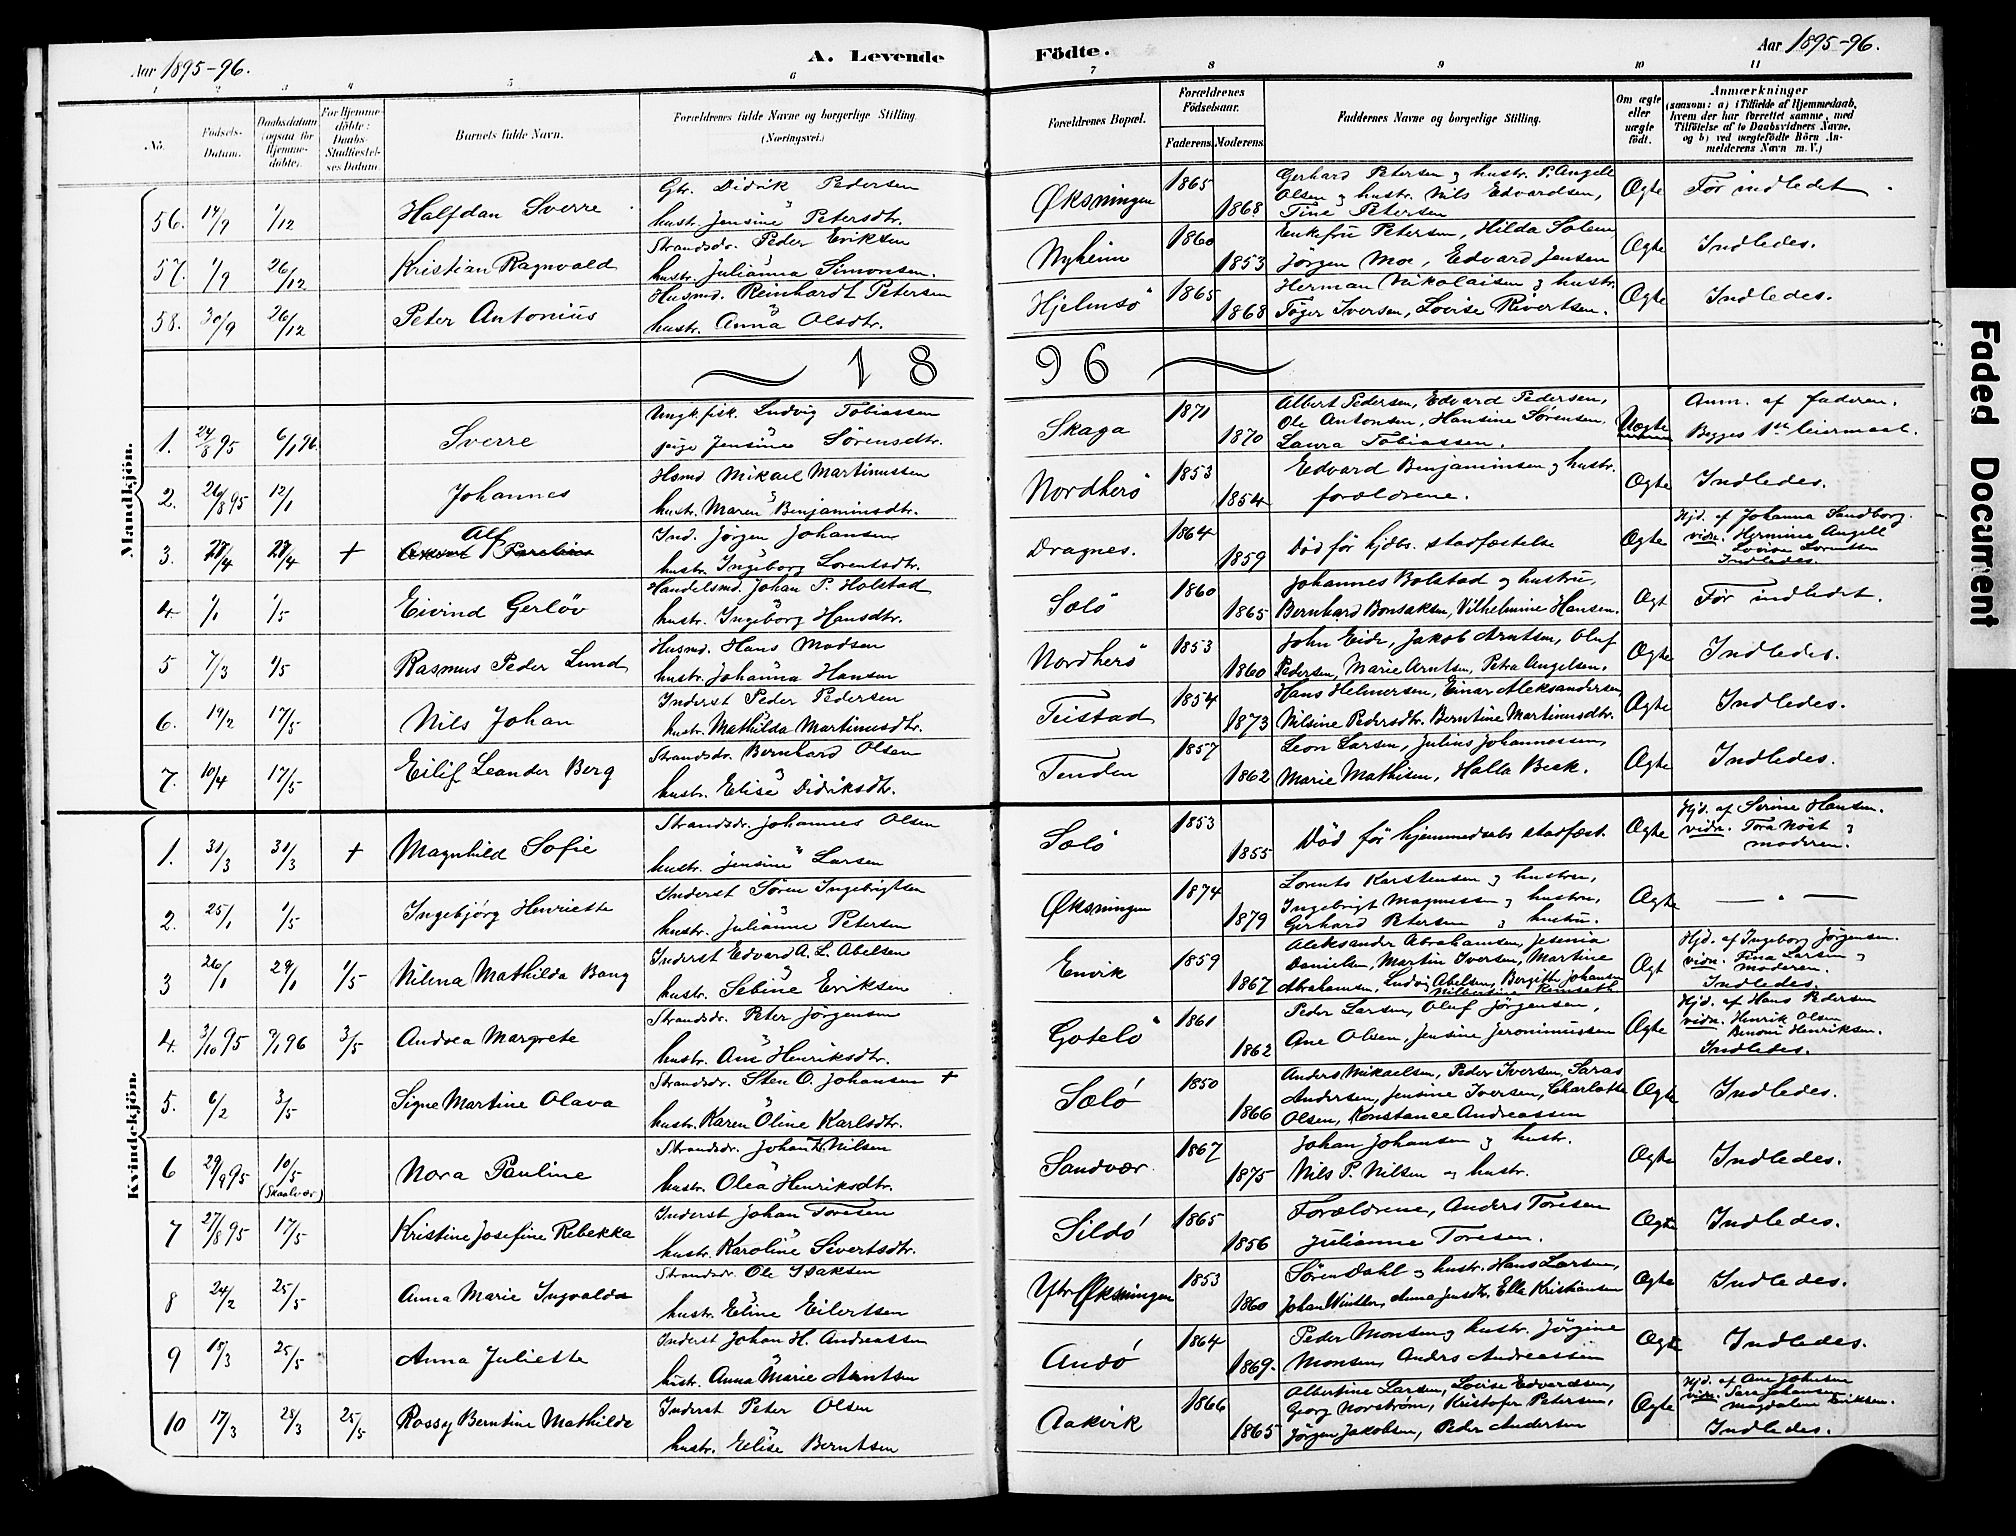 Aar 1895-96.
A. Levende
Födte.
Aar 1895-96.
1 2 3 4 5 6 7 8 9 10 11
No.
Fødsels-Datum.
Daabsdatum (ogsaa for Hjemme-döbte).
For Hjemme-döbte: Daabs Stadfæstel-ses Datum
Barnets fulde Navn.
Forældrenes fulde Navne og borgerlige Stilling. (Næringsvei.)
Forældrenes Bopæl.
Forældrenes Födselsaar.
Faderens. Moderens.
Faddernes Navne og borgerlige Stilling.
Om ægte eller uægte født.
Anmærkninger (saasom: a) i Tilfælde af Hjemmedaab, hvem der har forrettet samme, med Tilföielse af to Daabsvidners Navne, og b) ved uægtefödte Börn An-melderens Navn m. V.)
56. 14/9 1/12 Halfdan Sverre Gbr. Didrik Pedersen
hustr. Jensine Petersdtr. Øksningen 1865 1868 Gerhard Petersen og hustr. P. Angell
Olsen og hustr. Nils Edvardsen,
Tine Petersen Ægte Før indledet
57. 1/9 26/12 Kristian Ragnvald Strandsdr. Peder Eriksen
hustr. Julianna Simonsen. Nyheim 1860 1853 Enkefru Petersen, Hilda Solem
Jörgen Moe, Edvard Jensen Ægte Indledes.
58. 30/9 26/12 Peter Antonius Husmd. Reinhardt Petersen
hustr. Anna Olsdtr. Hjelmsö 1865 1868 Herman Nikolaisen og hustr.
Töger Iversen, Lovise Rivertsen. Ægte Indledes.
1896
Mandkjön.
1. 24/8 95 6/1 96. Sverre Ungk. fisk. Ludvig Tobiassen
pige Jensine Sørensdtr. Skaga 1871 1870 Albert Pedersen, Edvard Pedersen,
Ole Antonsen, Hansine Sørensen,
Laura Tobiassen. Uægte Anm. af faderen.
Begges 1ste leiermaal.
2. 26/8 95 12/1 Johannes Hsmd Mikael Martinussen
hustr. Maren Benjaminsdtr. Nordherö 1853 1854 Edvard Benjaminsen og hustr.
forældrene. Ægte Indledes.
3. 27/4 27/4 + Alf Parelius Ind. Jørgen Johansen
hustr. Ingeborg Lorentsdtr. Dragnes. 1864 1859 Död før hjdbs. stadfæstelse Ægte Hjd. af Johanna Sandborg.
vidn. Hermine Angell
Lovise Lorentsen
Indledes.
4. 1/1 1/5 Eivind Gerlöv Handelsmd. Johan P. Holstad
hustr. Ingeborg Hansdtr. Sælö 1860 1865 Johannes Bolstad og hustru,
Bernhard Bonsaksen, Vilhelmine Hansen. Ægt Før indledet.
5 7/3 1/5 Rasmus Peder Lund Husmd. Hans Madsen
hustr. Johanna Hansen Nordherö 1853 1860 John Eide, Jakob Arntsen, Oluf
Pedersen, Marie Arntsen, Petra Angelsen. Ægte Indledes.
6. 19/2 17/5 Nils Johan Inderst Peder Pedersen
hustr. Mathilda Martinusdtr. Teistad 1854 1873 Hans Helmersen, Einar Aleksandersen
Nilsine Pedersdtr. Berntine Martinusdtr. Ægte Indledes.
7. 10/4 17/5 Eilif Leander Berg Strandsdr. Bernhard Olsen
hustr. Elise Didriksdtr. Tenden 1857 1862 Leon Larsen, Julius Johannessen,
Marie Mathisen, Halla Beck. Ægte Indledes.
Kvindekjön.
1. 31/3 31/3 + Magnhild Sofie Strandsdr. Johannes Olsen
hustr. Jensine Larsen Sælö 1853 1855 Död før hjemmedaabs stadfæst. Ægte Hjd. af Serine Hansen.
vidn. Tora Nöst og
moderen.
2. 25/1 1/5 Ingebjörg Henriette Inderst Sören Ingebrigtsen
hustr. Julianne Petersen Øksningen 1874 1879 Lorents Karstensen og hustru,
Ingebrigt Magnussen og hustru,
Gerhard Petersen og hustru. Ægte — " —
3 26/1 29/1 1/5 Nilma Mathilda Bang Inderst Edvard A. L. Abelsen
hustr. Sebine Eriksen Envik 1859 1867 Aleksander Abrahamsen, Jesenia
Danielsen, Martin Iversen, Martine
Abrahamsen, Ludvig Abelsen, Bergitte Johansen
Ægt Hjd. af Ingeborg Jørgensen.
vidn. Fina Larsen og
moderen.
Indledes.
4. 3/10 95 9/1 96 3/5 Andrea Margrete Strandsdr. Peter Jörgensen
hustr. Ane Henriksdtr. Gotelö 1861 1862 Peder Larsen, Oluf Jörgensen,
Ane Olsen, Jensine Jeronimussen Ægte Hjd. af Hans Pedersen
vidn. Henrik Olsen
Benoni Henriksen.
Indledes.
5. 6/2 3/5 Signe Martine Olava Strandsdr. Sten O. Johansen +
hustr. Karen Oline Karlsdtr. Sælö 1850 1866 Anders Mikaelsen, Peder Iversen, Saras
Andersen, Jensine Iversen, Charlotte
Olsen, Konstance Andreassen Ægte Indledes.
6 29/9 95 10/5 (Skaalvær) Nora Pauline Strandsdr. Johan Nilsen
hustr. Olea Henriksdtr. Sandvær. 1867 1875 Johan Johansen og hustr.
Nils P. Nilsen og hustr. Ægte Indledes.
7 27/8 95 17/5 Kristine Josefine Rebekka Inderst Johan Toresen
hustr. Karoline Sivertsdtr. Sildö 1865 1856 Forældrene, Anders Toresen
Julianne Toresen. Ægte Indledes.
8 24/2 25/5 Anna Marie Ingvalda Strandsdr. Ole Isaksen
hustr. Eline Eilertsen Ytr Øksningen 1853 1860 Sören Dahl og hustr. Hans Larsen,
Johan Winther, Anna Jensdtr. Ella Kristiansen Ægte Indledes.
9 15/3 25/5 Anna Juliette Inderst Johan H. Andreassen
hustr. Anna Marie Arntsen Andö 1864 1869. Peder Monsen og hustr. Jörgine
Monsen, Anders Andreassen Ægte Indledes.
10 17/3 28/3 25/5 Rossy Berntine Mathilde Inderst Peter Olsen
hustr. Elise Berntsen Aakvik 1866 1865 Albertine Larsen, Lovise Edvardsen,
Georg Norström, Kristofer Petersen,
Jörgen Jakobsen, Peder Andersen Ægte Hjd. af Ane Johnsen
vidn. Sara Johansen
Magdalene Eriksen.
Indledes.
Faded Document